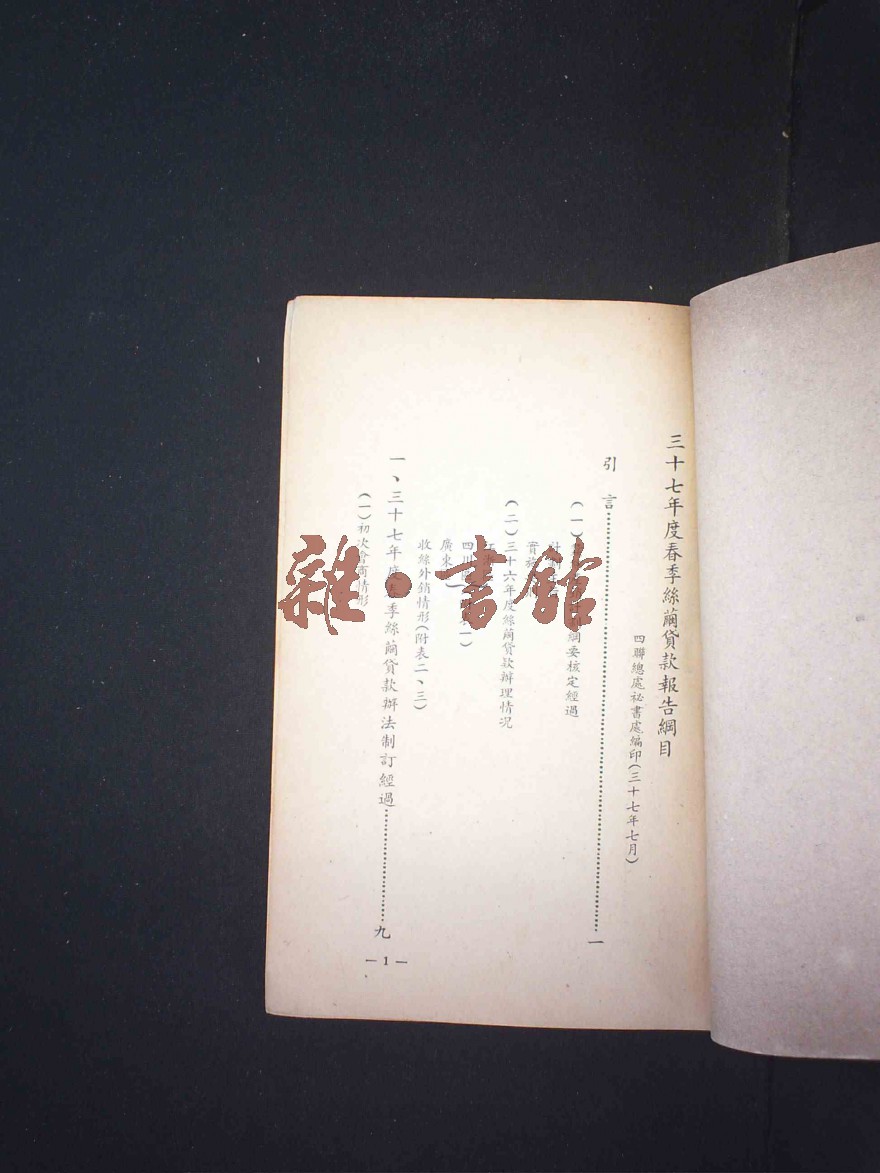 三十七年度春季絲繭貸款報告綱目
四聯總處祕書處編印(三十七年七月)
引言 一
(一) 綱要核定經過
實
(二)三十六年度絲繭貸款辦理情况
四川 一)
廣東
收絲外銷情形(附表二、三)
一、三十七年度春季絲繭貸款辦法制訂經過 九
(一)初次會商情形
—1—
雜·書館